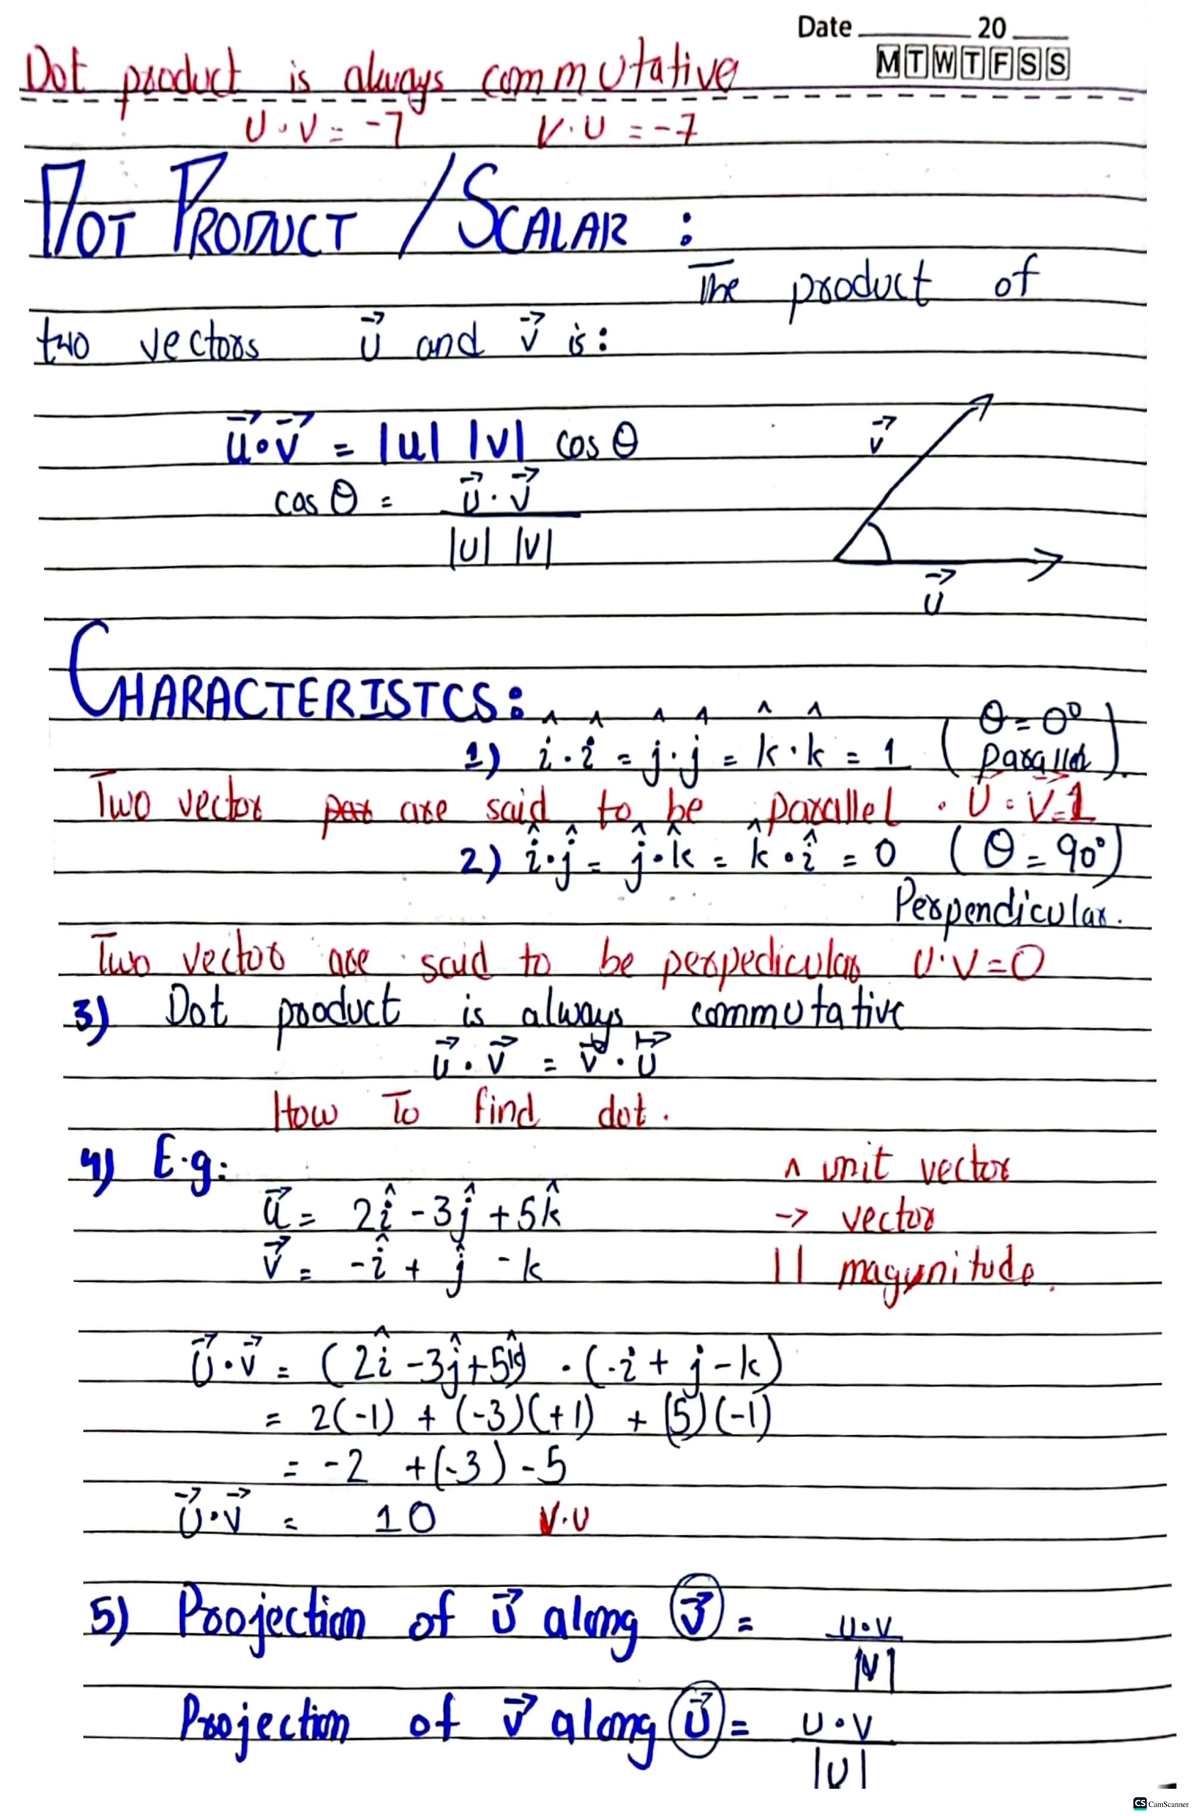 Date ______ 20 ____
M T W T F S S
Dot product is always commutative
U·V = -7 V·U = -7
DOT PRODUCT / SCALAR :
The product of
two vectors u⃗ and v⃗ is:
u⃗·v⃗ = |u| |v| cos θ
cos θ = u⃗·v⃗
|u| |v|
v⃗
u⃗
CHARACTERISTCS:
1) î·î = ĵ·ĵ = k̂·k̂ = 1 (θ = 0° Parallel).
Two vector are said to be parallel. U⃗·V⃗=1
2) î·ĵ = ĵ·k̂ = k̂·î = 0 (θ = 90°)
Perpendicular.
Two vector are said to be perpedicular U·V=0
3) Dot product is always commutative
u⃗·v⃗ = v⃗·u⃗
How To find dot.
4) E.g:
^ unit vector
u⃗ = 2î - 3ĵ + 5k̂
-> vector
v⃗ = -î + ĵ - k
| | magunitude.
u⃗·v⃗ = (2î - 3ĵ + 5k̂) · (-i + j - k)
= 2(-1) + (-3)(+1) + (5)(-1)
= -2 + (-3) - 5
u⃗·v⃗ = 10 V·U
5) Projection of u⃗ along v⃗ = u·v
|v|
Projection of v⃗ along u⃗ = u·v
|u|
CS CamScanner